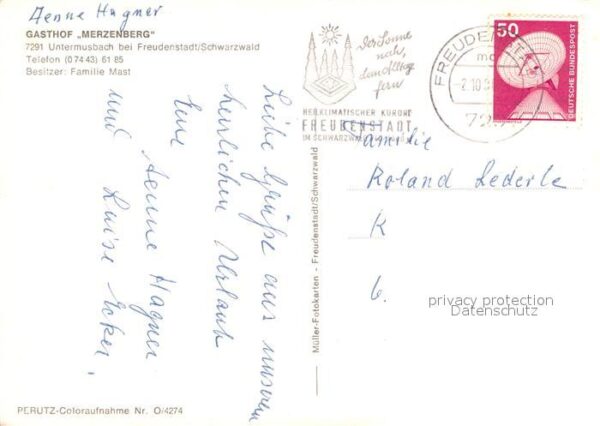 Aenne Hagner
GASTHOF „MERZENBERG"
7291 Untermusbach bei Freudenstadt/Schwarzwald
Telefon (0 74 43) 61 85
Besitzer: Familie Mast
Liebe Grüße aus unserem
herrlichen Urlaub
Eure
Aenne Hagner
und Luise Ecker.
PERUTZ-Coloraufnahme Nr. O/4274
Müller-Fotokarten - Freudenstadt/Schwarzwald
Der Sonne
nah,
dem Alltag
fern
HEILKLIMATISCHER KURORT
FREUDENSTADT
IM SCHWARZWALD
FREUDENSTADT
2.10.8
729
50
DEUTSCHE BUNDESPOST
Familie
Roland Lederle
K
6.
privacy protection
Datenschutz